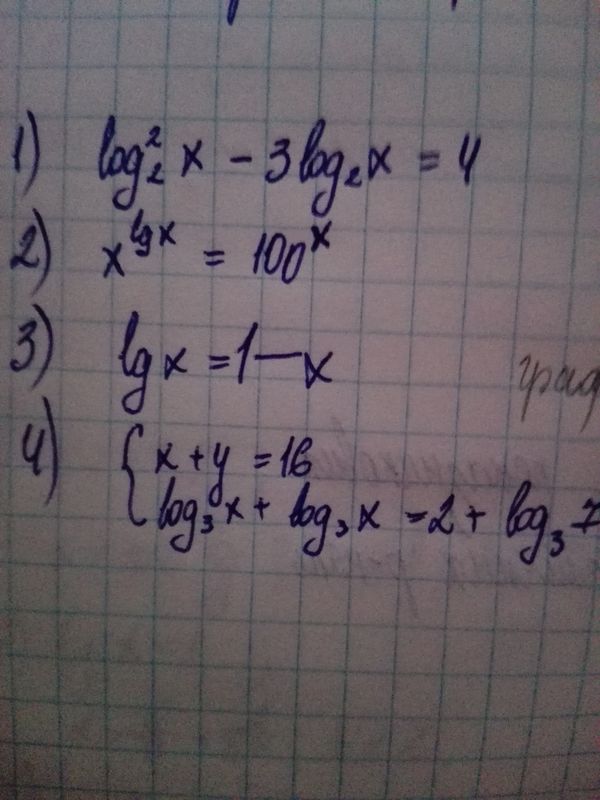 1) log₂² x - 3 log₂ x = 4
2) x^lg x = 100^x
3) lg x = 1 - x
град
4) { x + y = 16
log₃ x + log₃ x = 2 + log₃ 7